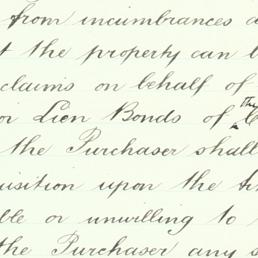 from incumbrances a
t the property can b
claims on behalf of
or Lien Bonds of the C
the Purchaser shall
uisition upon the ti
ble or unwilling to
the Purchaser any s